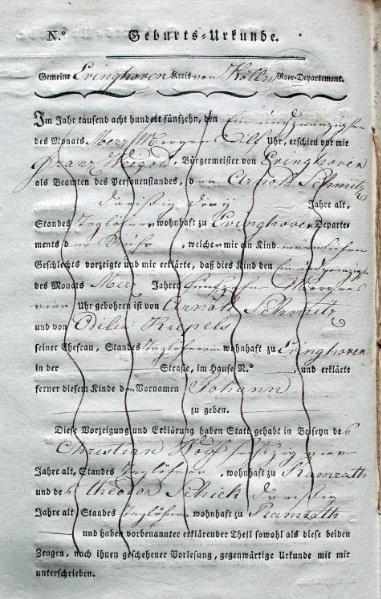 N.º Geburts-Urkunde.
Gemeine Evinghoven Kreis von Kölln Roer-Departement.
Im Jahr tausend acht hundert fünfzehn, den ein und zwanzigsten
des Monats Merz Morgens Eilf Uhr, erschien vor mir
Franz Bürgermeister von Evinghoven
als Beamten des Personenstandes, der Arnold Schmitz
dreißig drey Jahre alt,
Standes Taglöhner wohnhaft zu Evinghoven Departe-
ments der Ruhr, welcher mir ein Kind männlichen
Geschlechts vorzeigte und mir erklärte, daß dies Kind den
des Monats Merz Jahres fünfzehn Morgens
vier Uhr gebohren ist von Arnold Schmitz
und von Odilia
seiner Ehefrau, Standes wohnhaft zu Evinghoven
in der Straße, im Hause N.º , und erklärte
ferner diesem Kinde den Vornamen Johann
zu geben.
Diese Vorzeigung und Erklärung haben Statt gehabt in Beiseyn des
Christian sechszig vier
Jahre alt, Standes Taglöhner, wohnhaft zu Ramrath
und des Theodor Schieh dreißig
Jahre alt Standes Taglöhner wohnhaft zu Ramrath
und haben vorbenannter erklärender Theil sowohl als diese beiden
Zeugen, nach ihnen geschehener Vorlesung, gegenwärtige Urkunde mit mir
unterschrieben.